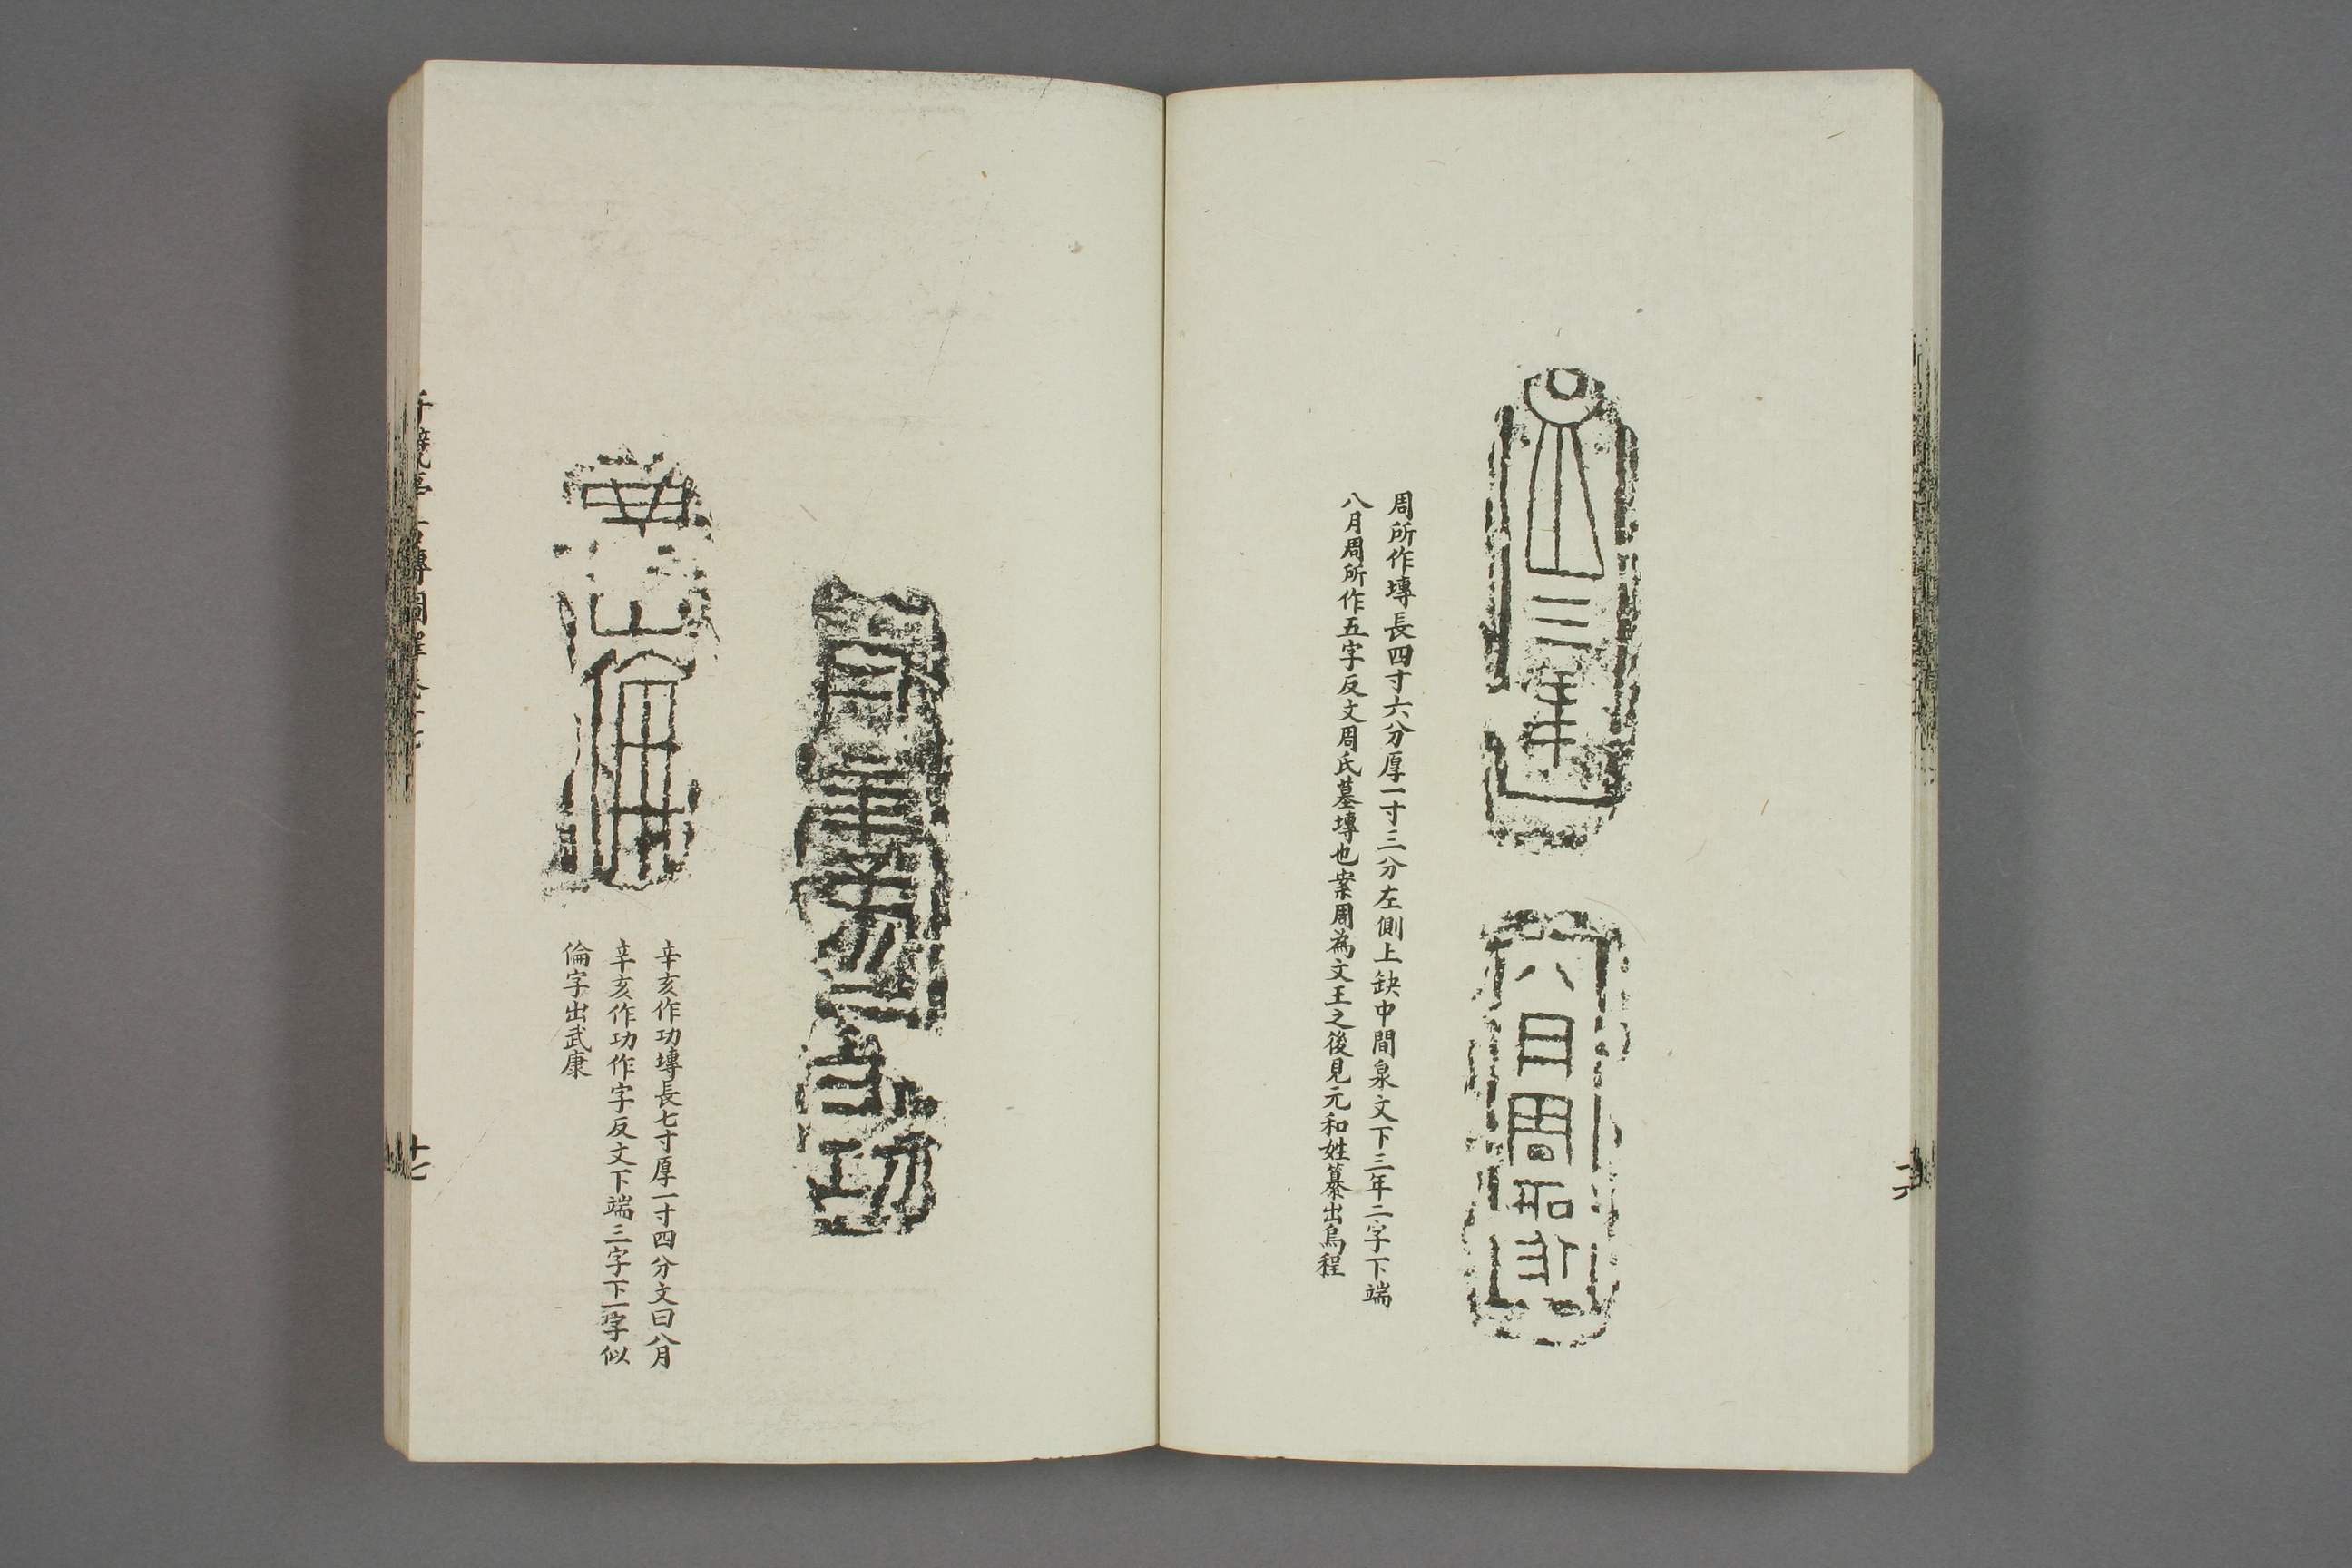 三年
八月周所作
周所作塼長四寸六分厚一寸三分左側上缺中間泉文下三年二字下端
八月周所作五字反文周氏墓塼也案周為文王之後見元和姓纂出烏程
辛亥作功塼長七寸厚一寸四分文曰八月
辛亥作功作字反文下端三字下一字似
倫字出武康